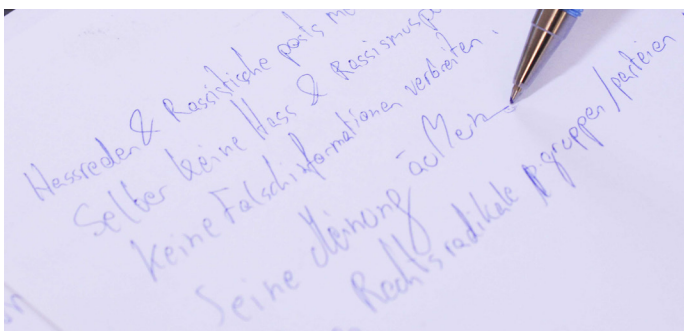 Hassreden & Rassistische posts
Selber keine Hass & Rassismus
keine Falschinformationen verbreiten.
Seine Meinung äußern
Rechtsradikale gruppen/parteien